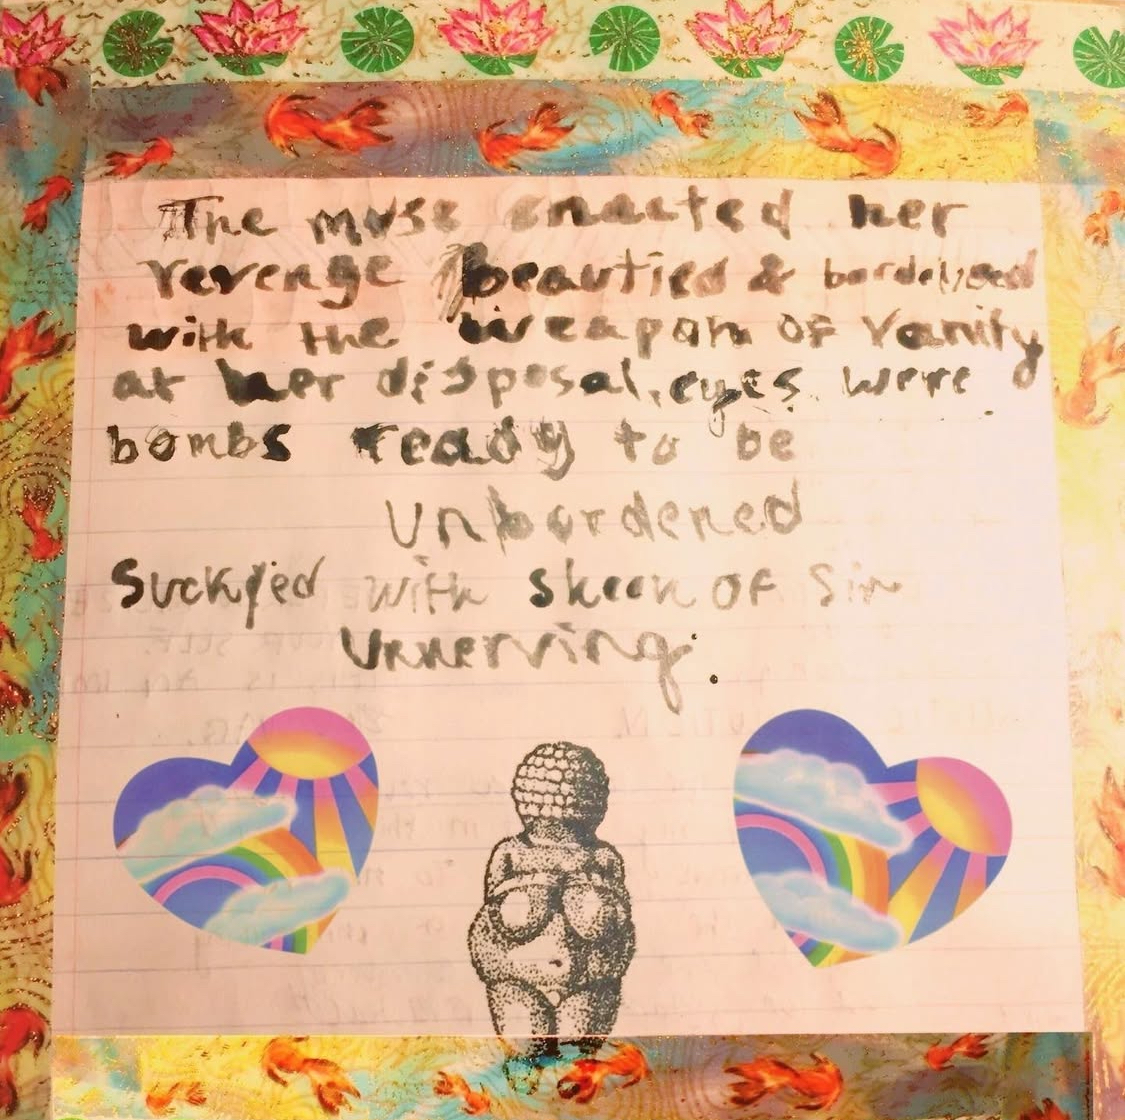 The muse enacted her
revenge beautied & bordelized
with the weapon of Vanity
at her disposal, eyes were
bombs ready to be
Unbordened
Suckyied with skeen of Sin
Unnerving.